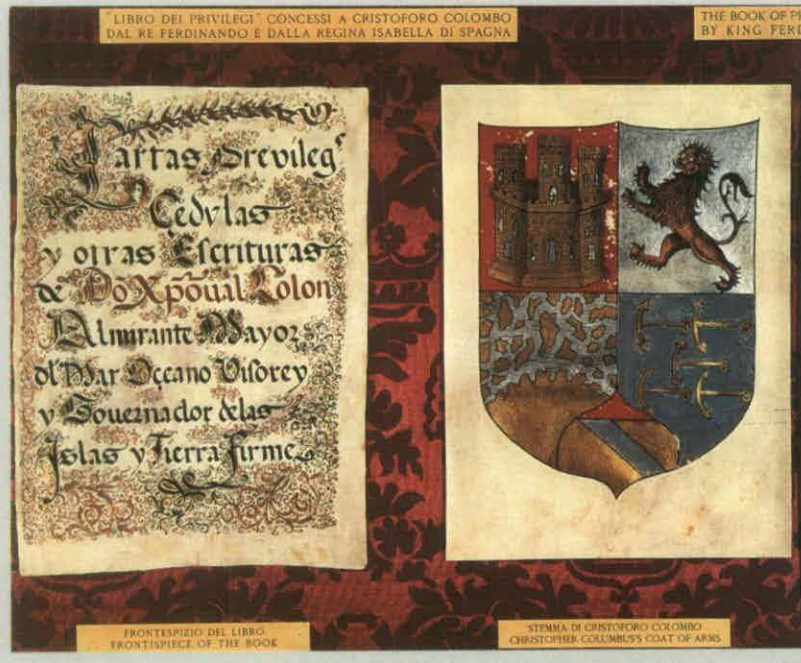 "LIBRO DEI PRIVILEGI" CONCESSI A CRISTOFORO COLOMBO
DAL RE FERDINANDO E DALLA REGINA ISABELLA DI SPAGNA
THE BOOK OF P
BY KING FER
Cartas Previleg^s
Cedulas
y otras Escrituras
de Dõ Xpõual Colon
Almirante Mayor
dl Mar Oceano Visorey
y Gouernador delas
Islas y Tierra firme
FRONTESPIZIO DEL LIBRO
FRONTISPIECE OF THE BOOK
STEMMA DI CRISTOFORO COLOMBO
CHRISTOPHER COLUMBUS'S COAT OF ARMS